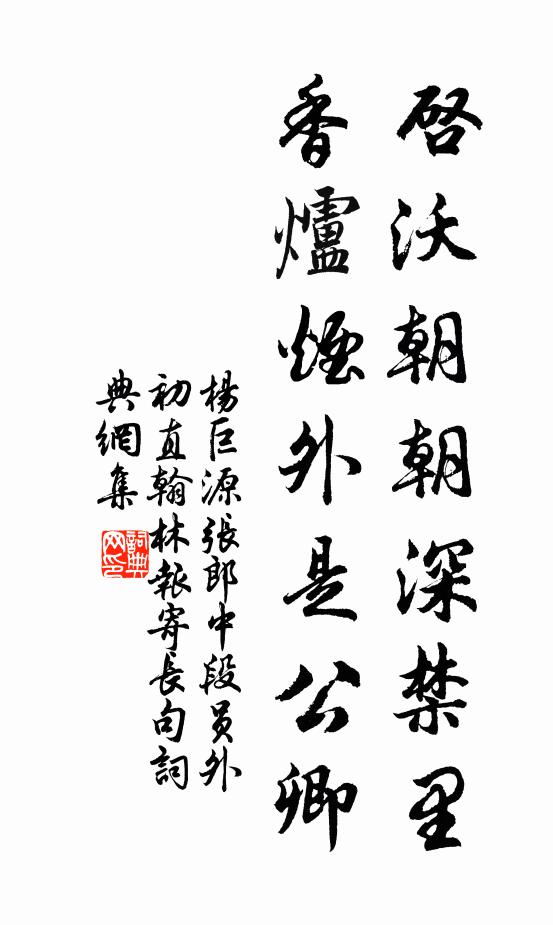 啓沃朝朝深禁里
香爐煙外是公卿
楊巨源張郎中段員外
初直翰林報寄長句詞
典網集
詞典网印